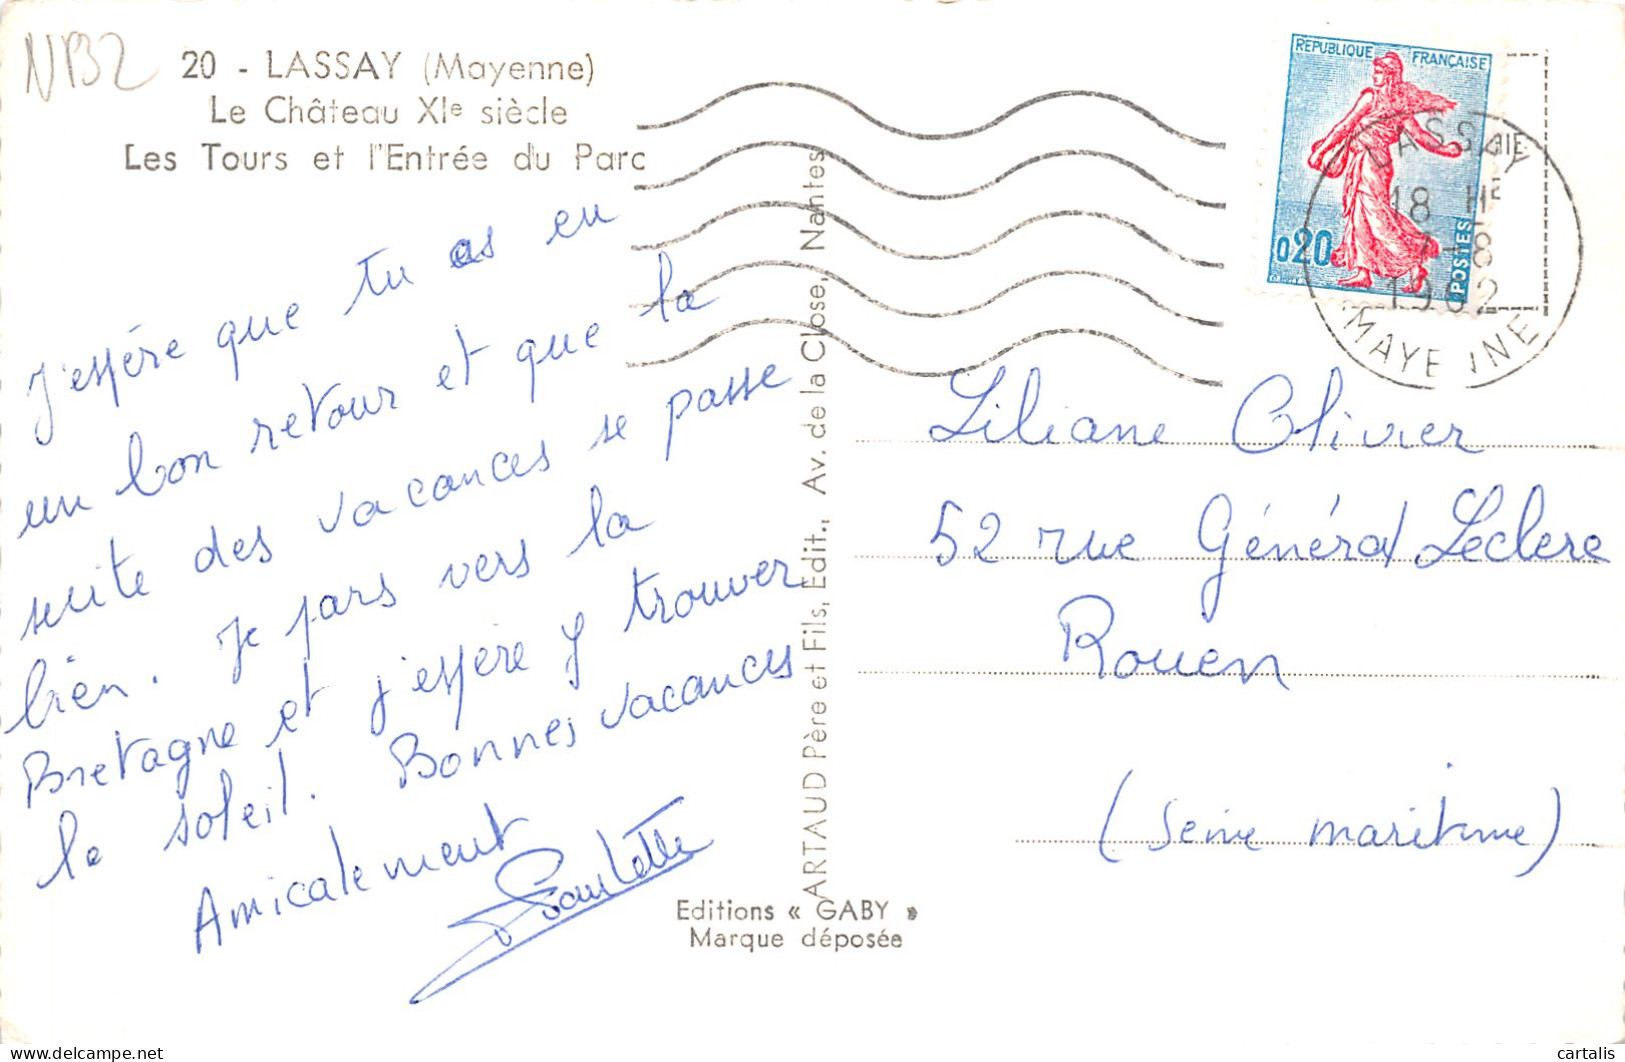 NB2
20 - LASSAY (Mayenne)
Le Château XIe siècle
Les Tours et l'Entrée du Parc
J'espère que tu as eu
un bon retour et que la
suite des vacances se passe
bien. Je pars vers la
Bretagne et j'espère y trouver
le soleil. Bonnes vacances
Amicalement
ARTAUD Père et Fils, Edit., Av. de la Close, Nantes
Editions « GABY »
Marque déposée
REPUBLIQUE FRANÇAISE
0,20
POSTES
LASSAY
18 HE
7-8
1962
MAYENNE
Liliane Olivier
52 rue Général Leclerc
Rouen
(Seine maritime)
cartalis